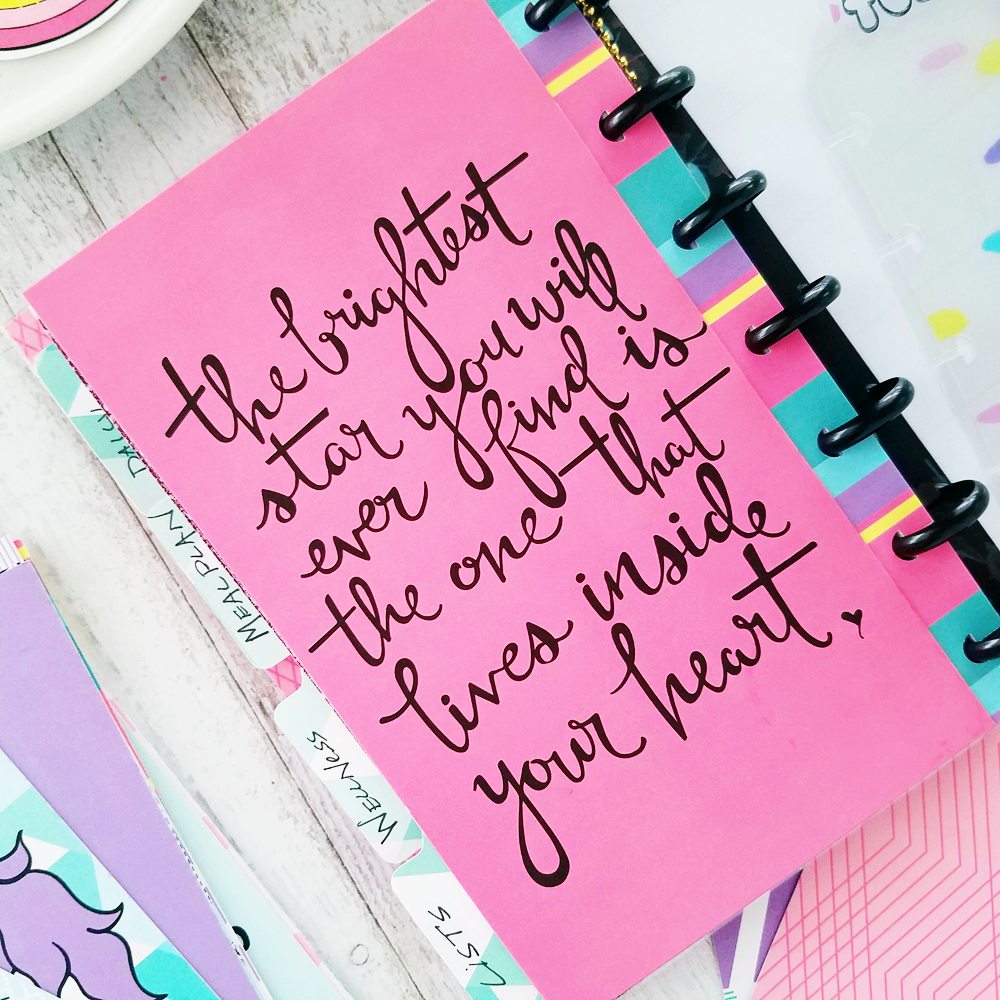 the brightest
star you will
ever find is
the one that
lives inside
your heart.
DAILY
MEAL PLAN
WELLNESS
LISTS